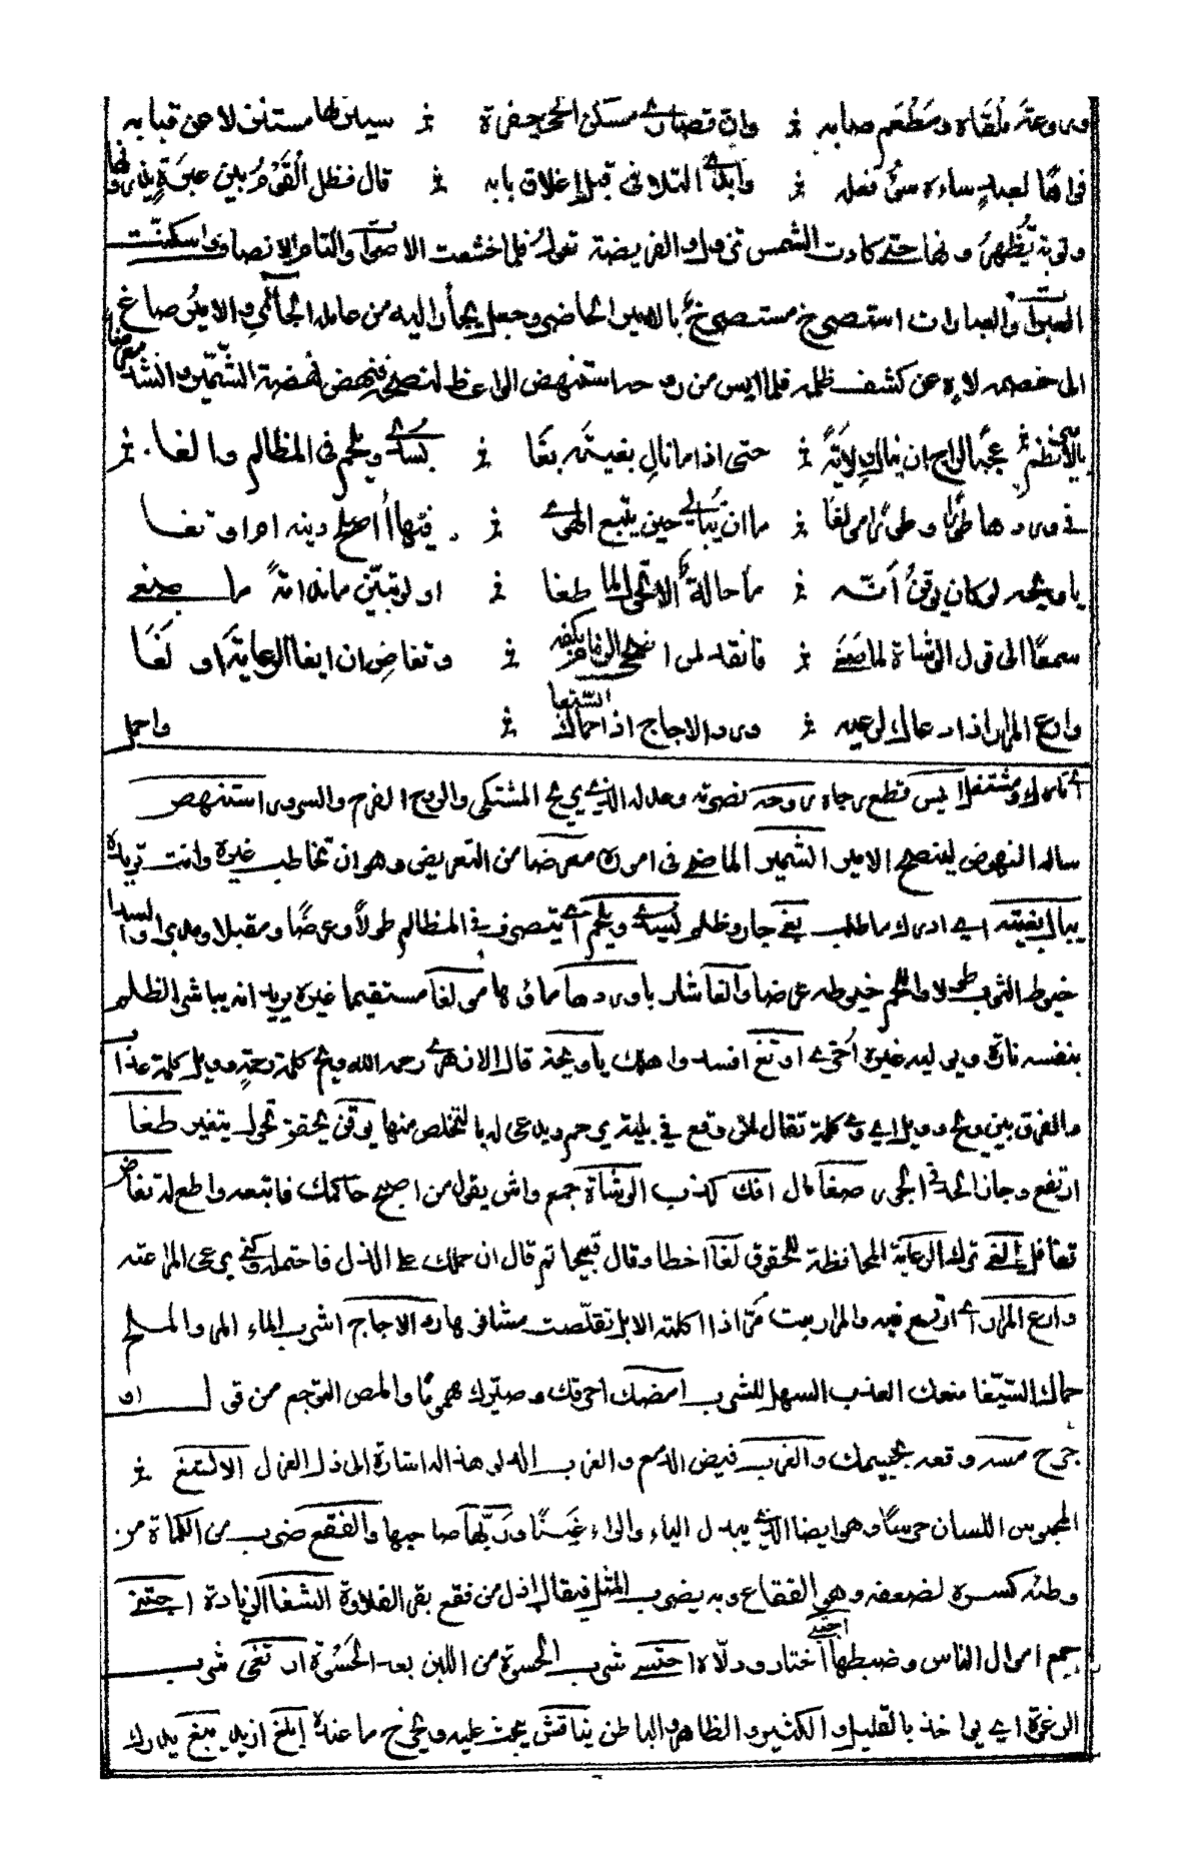 وروعة ملقاه ومطعم صابه ⁘ وان قصارى مسكن الحي حفرة ⁘ سينزلها مستنزلا عن قبابه
فواها لعبد ساءه سوء فعله ⁘ وابدى التلافى قبل اغلاق بابه ⁘ قال فظل القوم بين عبرة يذرونها
وتوبة يظهرونها حتى كادت الشمس تزول والفريضة تعول فلما خشعت الاصوات والتام الانصات واسكنت
العبرات والعبارات استصرخ مستصرخ بالامير الحاضر وجعل يجأر اليه من عامله الجائر والامير صاغ
الى خصمه لاه عن كشف ظلمه فلما ايس من روحه استنهض الواعظ لنصحه فنهض نهضة الشمير وانشد معرضا
بالامير نظم عجبا لراج ان ينال ولاية ⁘ حتى اذا ما نال بغيته بغا ⁘ يسدى ويلحم فى المظالم والغا ⁘
فى وردها طورا وطورا مولغا ⁘ ما ان يبالي حين يتبع الهوى ⁘ فيها أاصلح دينه ام اوتغا
يا ويحه لو كان يوقن أنه ⁘ ما حالة الا تحول لما طغا ⁘ او لو تبين ما ندامة ما صغى
سمعا الى قول الوشاة لما صغى ⁘ فانقد لمن اضحى الزمام بكفه ⁘ وتغاض ان الغا الرعاية او لغا
وارع المرار اذا دعاك لرعيه ⁘ ورد الاجاج اذا حماك السيغا ⁘ واحمل
ايس قطع رجاه روحه نصرته وعدله الذي يريح المشتكى والروح الفرح والسرور استنهض
ساله النهوض لينصح الامير الشمير الماضى فى اموره معرضا من التعريض وهو ان تخاطب غيره وانت تريده
ينال بغيته اي ادرك ما طلب بغى جار وظلم يسدى ويلحم اي يتصرف فى المظالم طولا وعرضا ومقبلا ومدبرا والسدا
خيوط الثوب طولا واللحم خيوطه عرضا والغا شاربا وردها ماؤها مولغا مستقيما غيره يريد انه يباشر الظلم
بنفسه تارة ويوليه غيره أخرى اوتغ افسد واهلك يا ويحه قال الازهرى رحمه الله ويح كلمة رحمة وويل كلمة عذاب
والفرق بين ويح وويل ان ويح كلمة تقال لمن وقع في بلية يرحم ويدعى له بالتخلص منها يوقن يحقق تحول يتغير طغا
ارتفع وجاز الحد في الجور صغا مال افك كذب الوشاة جمع واش يقول من اصبح حاكمك فاتبعه واطع له تغاض
تغافل الغى ترك الرعاية المحافظة للحقوق لغا اخطا وقال قبيحا ثم قال ان حملك على الذل فاحتمله وكنى برعى المرار عنه
وارع المرار اي ارتع فيه والمرار نبت مر اذا اكلته الابل تقلصت مشافرها رد الاجاج اشرب الماء المر والملح
حماك السيغا منعك العذب السهل للشرب امضك احرقك وصيرك هموما والمص التوجع من قول او
جرح مسه وقعه بجسمك والغرب فيض الدمع والغرب الدلو هذا اشارة الى ذل العزل الالثغ ⁘
المحبوس اللسان حرسا وهو ايضا الذي يبدل الياء والراء غينا وربها صاحبها والفقع ضرب من الكماة من
وطئه كسره لضعفه وهى الفقاع وبه يضرب المثل فيقال اذل من فقع بقر الفلاة الشغا الزيادة اجتنى
جمع اموال الناس وضبطها اجتبى اختار وولاه احتسى شرب الحسوة من اللبن بعد الحسوة ارتغى شرب
الرغوة اي يواخذ بالقليل والكثير والظاهر والباطن يناقش يبحث عليه ويخرج ما عنده ابلغ ازيد يبغ يدرك